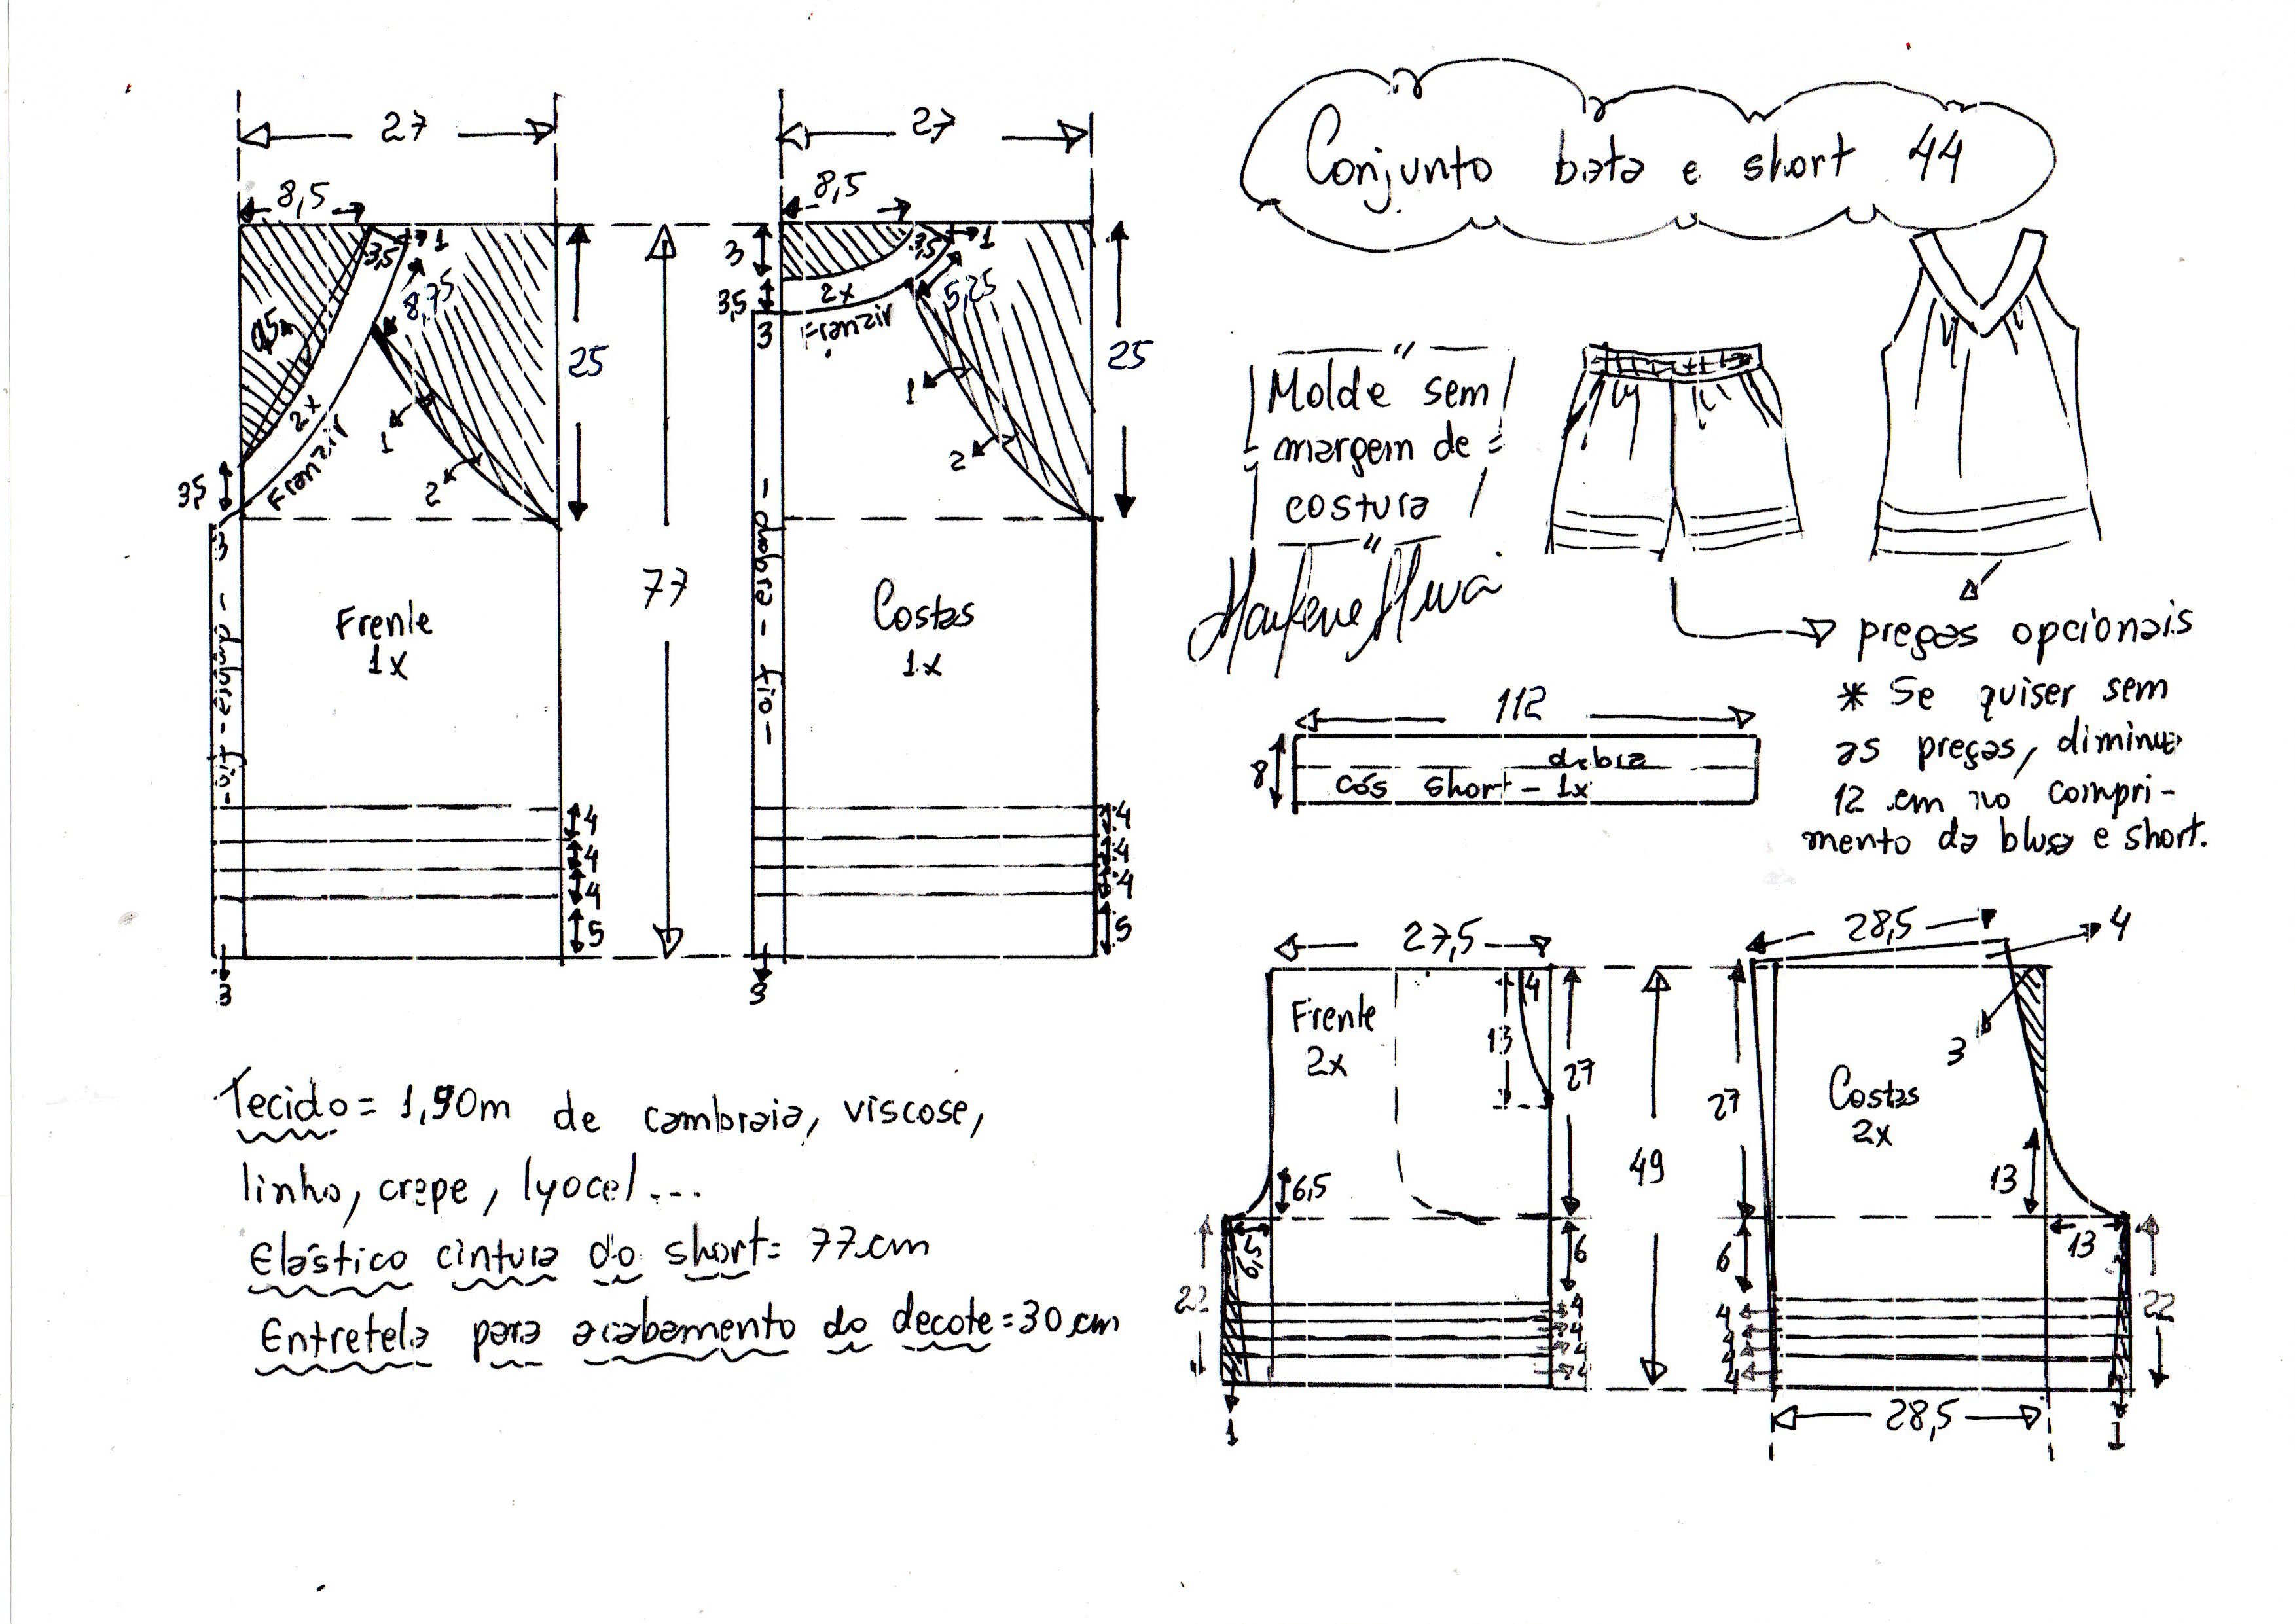 Conjunto bata e short 44
27
8,5
3,5
1
8,75
0,5
2x
Franzir
3,5
1
2
25
3
- dobra - fio -
Frente
1x
4
4
4
5
3
77
27
8,5
3
3,5
1
5,25
3,5
2x
Franzir
3
1
2
25
- dobra - fio -
Costas
1x
4
4
4
5
3
" Molde sem
margem de
costura "
pregas opcionais
* Se quiser sem
as pregas, diminua
12 cm no compri-
mento da blusa e short.
112
8
dobra
cós short - 1x
Tecido = 1,90m de cambraia, viscose,
linho, crepe, lyocel...
Elástico cintura do short = 77 cm
Entretela para acabamento do decote = 30 cm
27,5
Frente
2x
4
13
27
6,5
6,5
6
22
4
4
4
4
1
49
28,5
4
3
27
Costas
2x
13
13
6
22
4
4
4
4
28,5
1